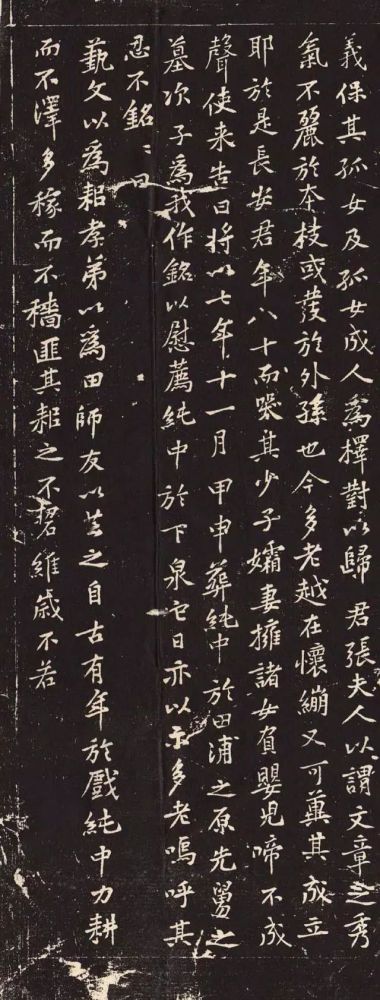 義保其孤女及孤女成人為擇對以歸君張夫人以謂文章之秀
氣不麗於本枝或發於外孫也今多老越在懷繃又可冀其成立
耶於是長安君年八十而哭其少子孀妻擁諸女負嬰兒啼不成
聲使来告曰將以七年十一月甲申葬純中於田浦之原先舅之
墓次子為我作銘以慰薦純中於下泉它日亦以示多老嗚呼其
忍不銘〻曰
藝文以為耜孝弟以為田師友以芸之自古有年於戲純中力耕
而不澤多稼而不穡匪其耜之不維歲不若